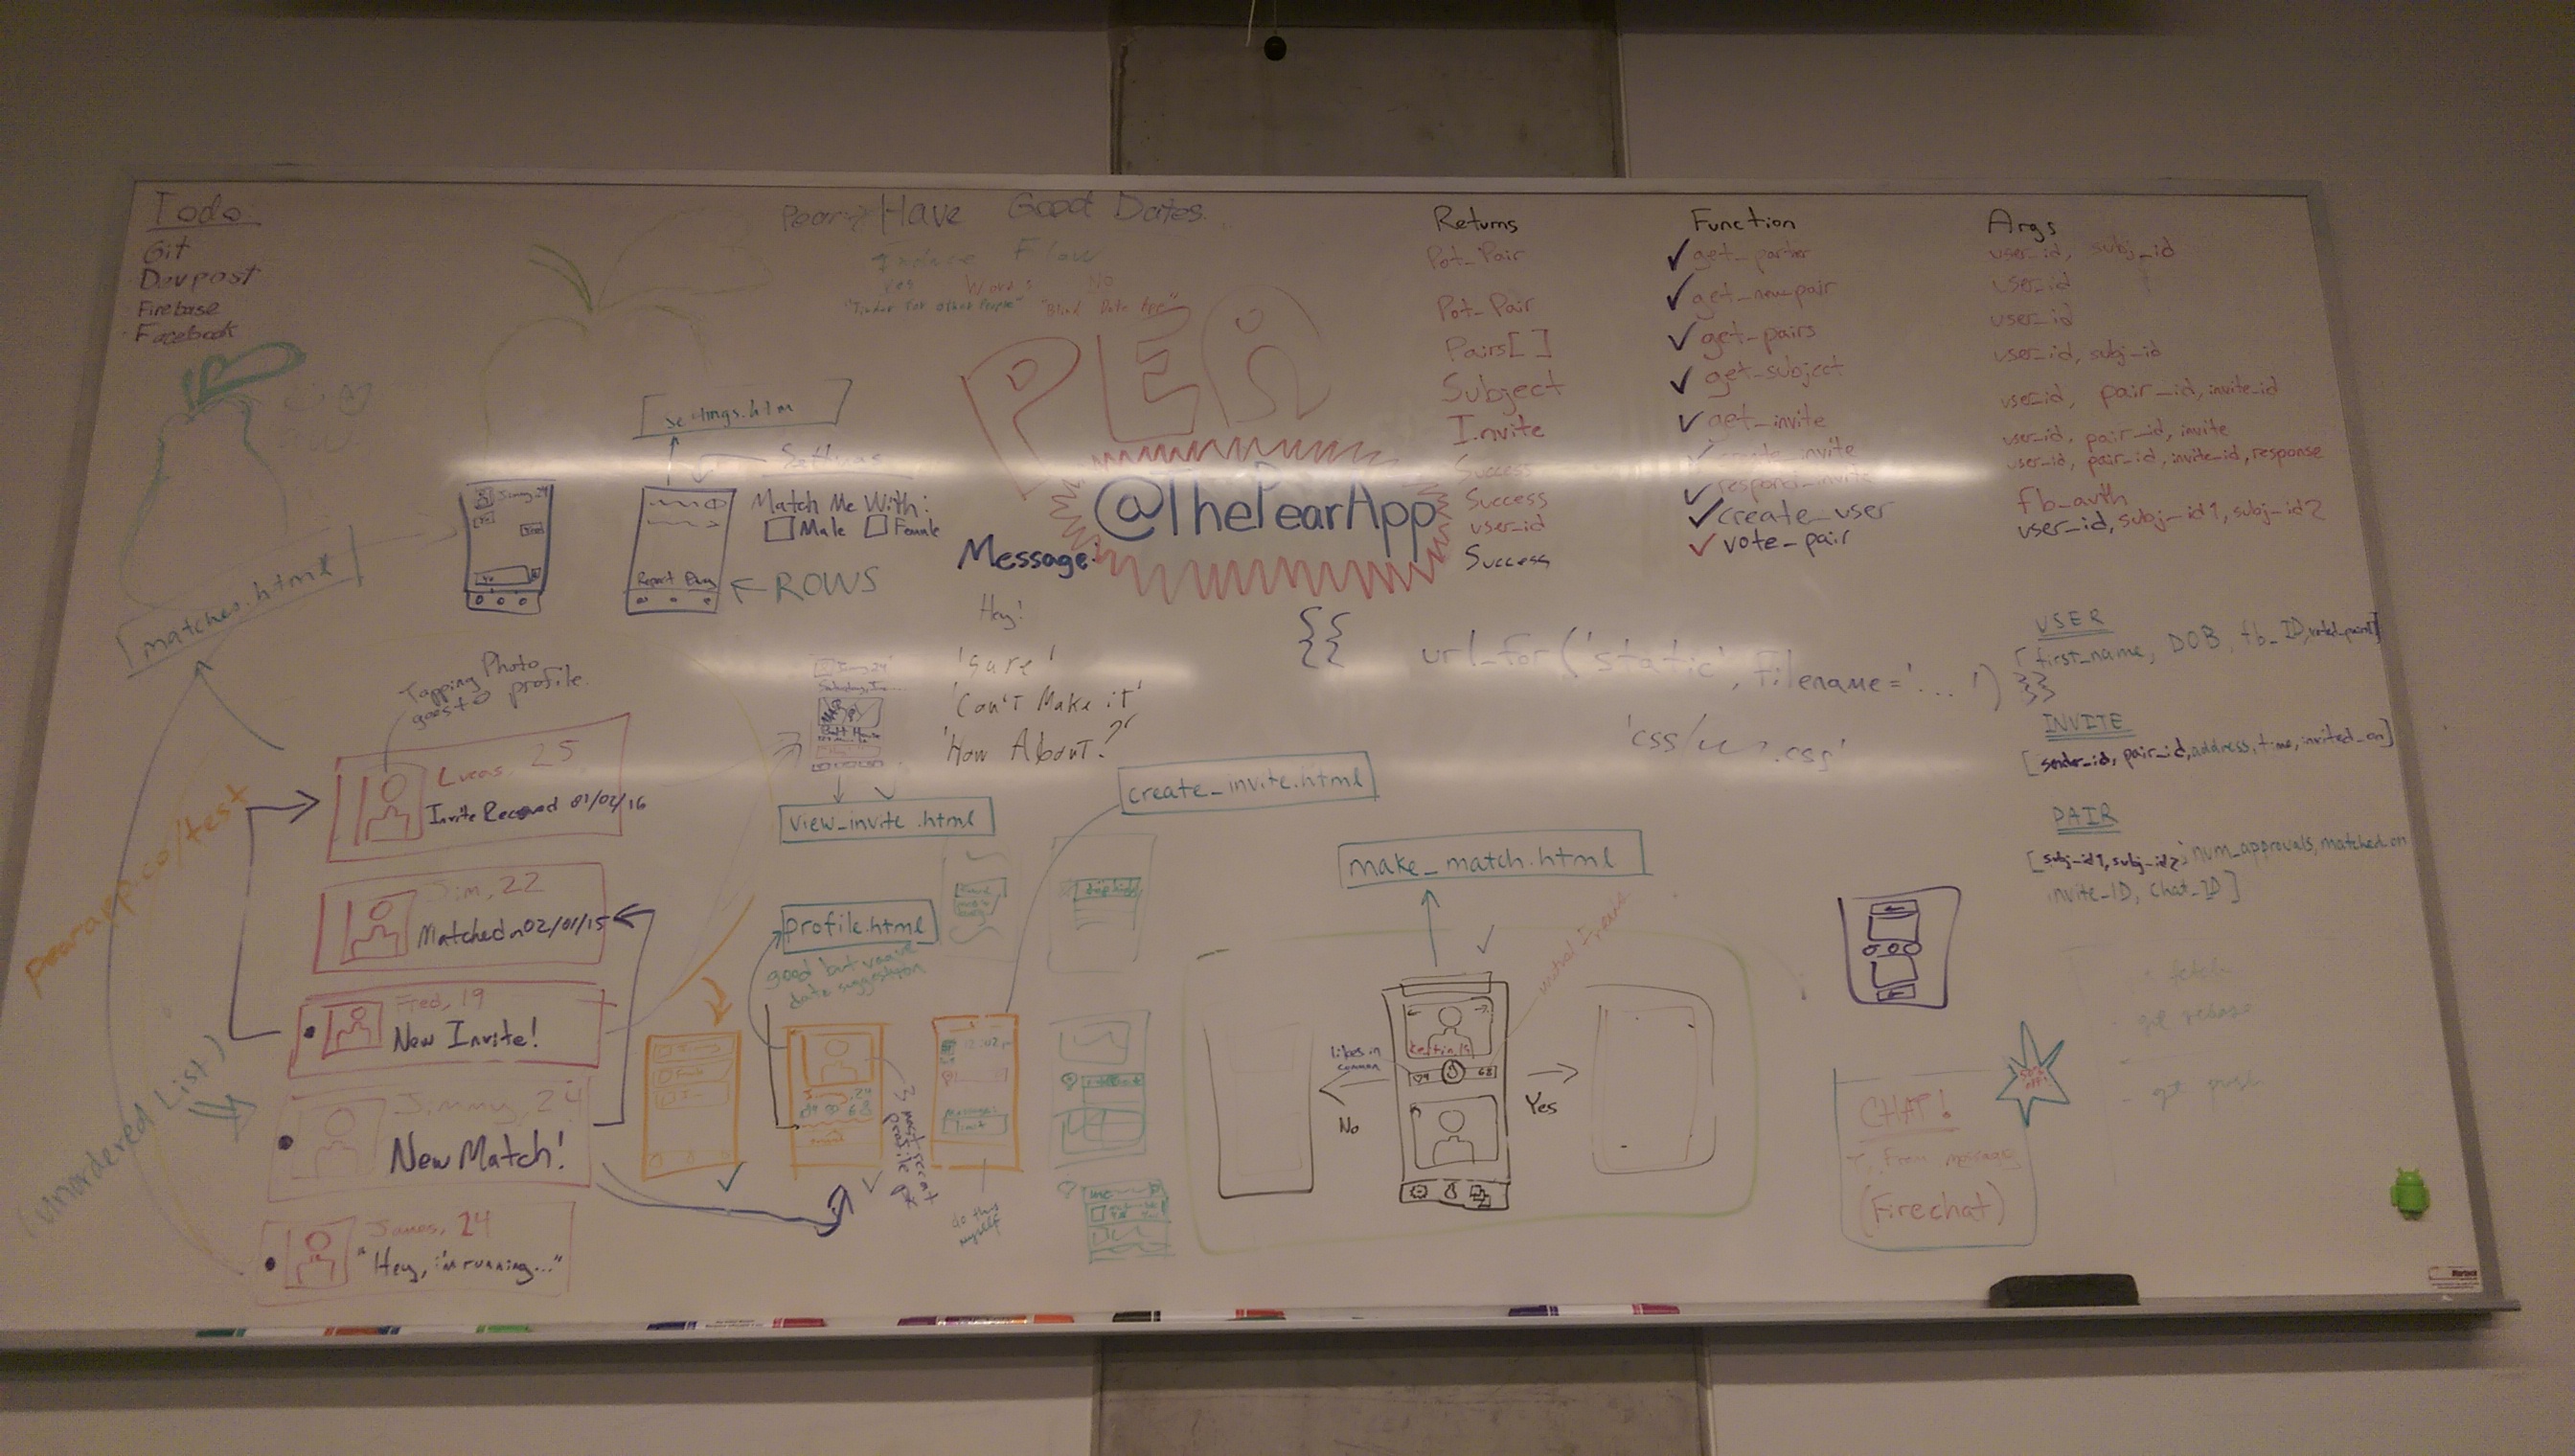 Todo
Git
Devpost
Firebase
Facebook
Have Good Dates
Flow
Yes
No
"Tinder for other People"
"Blind Date
PEA
@ThePearApp
Message:
Hey!
'Sure'
'Can't Make it'
'How About?'
settings.htm
Settings
Match Me With:
Male Female
ROWS
Jimmy, 24
matches.html
Tapping Photo
goes to profile.
Lucas, 25
Invite Received 01/02/16
Jim, 22
Matched on 02/01/15
Fred, 19
New Invite!
Jimmy, 24
New Match!
James, 24
"Hey, i'm running..."
pearapp.co/test
(unordered List)
view_invite.html
create_invite.html
profile.html
good but vague
date suggestion
Jimmy, 24
68
3 most recent
profile
12:02
Message:
limit
do this
myself
make_match.html
mutual friends
likes in
common
68
No
Yes
Returns Function Args
Pot_Pair get_partner user_id, subj_id
Pot_Pair get_new_pair user_id
Pairs[ ] get_pairs user_id
Subject get_subject user_id, subj_id
Invite get_invite user_id, pair_id, invite_id
Success create_invite user_id, pair_id, invite
Success respond_invite user_id, pair_id, invite_id, response
user_id create_user fb_auth
Success vote_pair user_id, subj_id1, subj_id2
{{ url_for('static', filename='...') }}
'css/ .css'
USER
[first_name, DOB, fb_ID,
INVITE
[sender_id, pair_id, address, time, invited_on]
PAIR
[subj_id1, subj_id2, num_approvals, matched_on
invite_ID, Chat_ID]
fetch
git rebase
git push
CHAT!
From message
(Firechat)